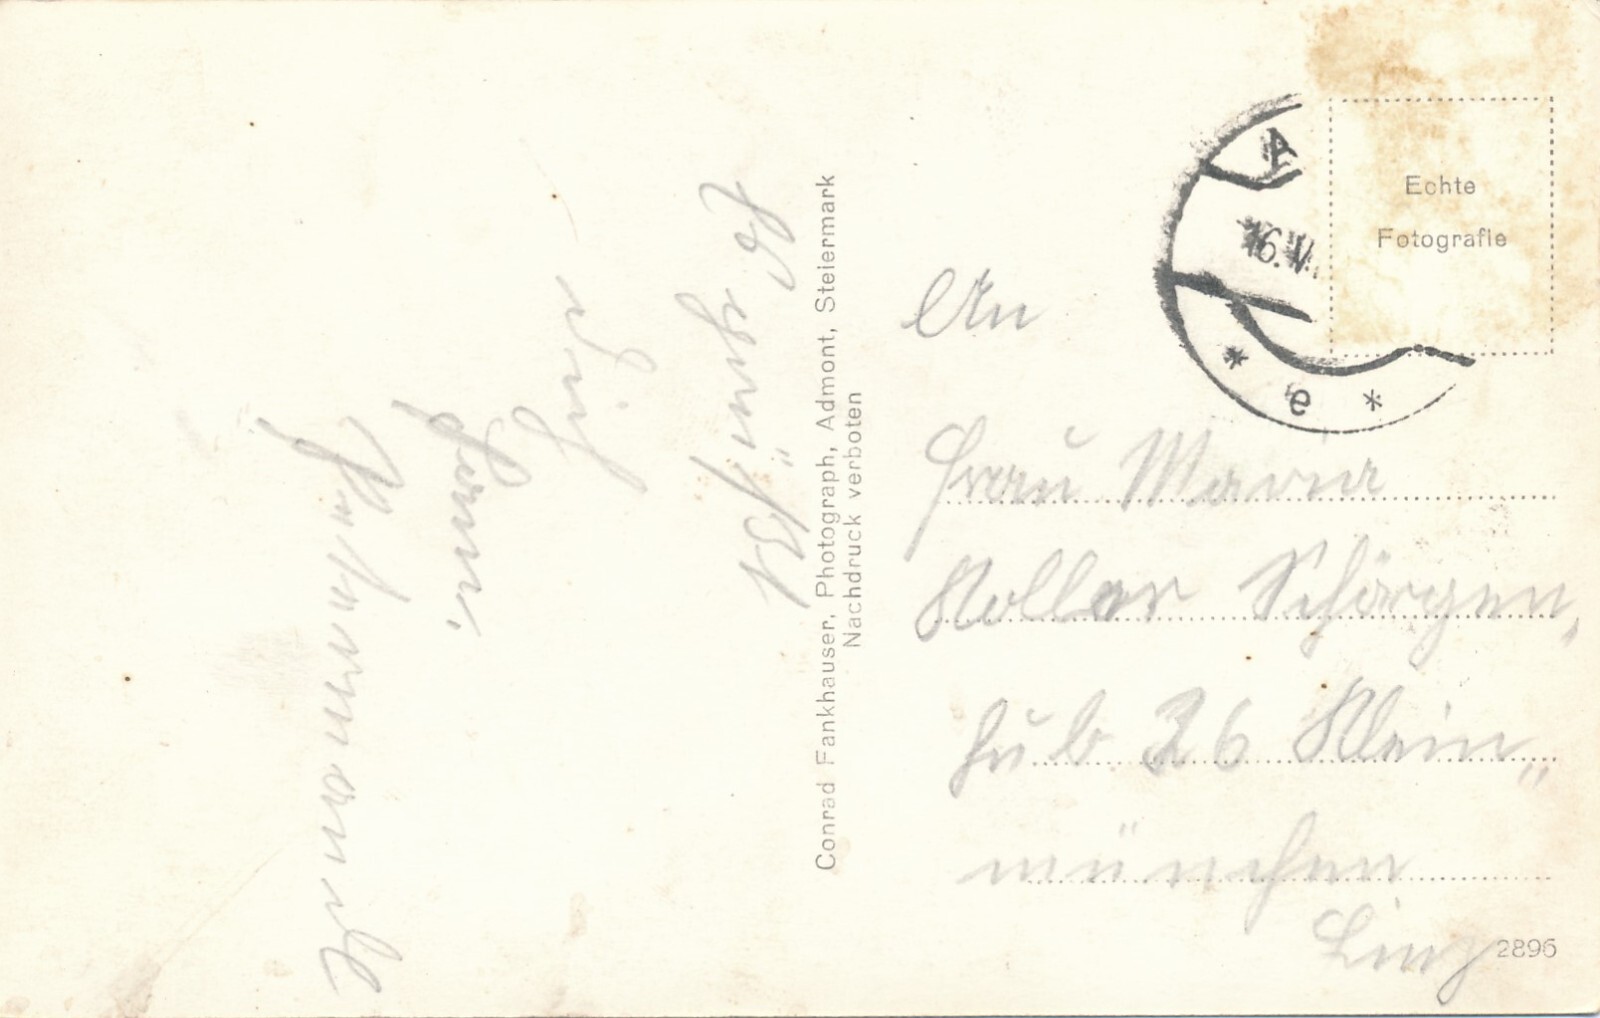 Echte
Fotografie
A
16.VI
* e *
An
Frau Maria
Koller Schörgen„
hub 26 Klein„
münchen
Linz
2896
Conrad Fankhauser, Photograph, Admont, Steiermark
Nachdruck verboten
Es grüßt